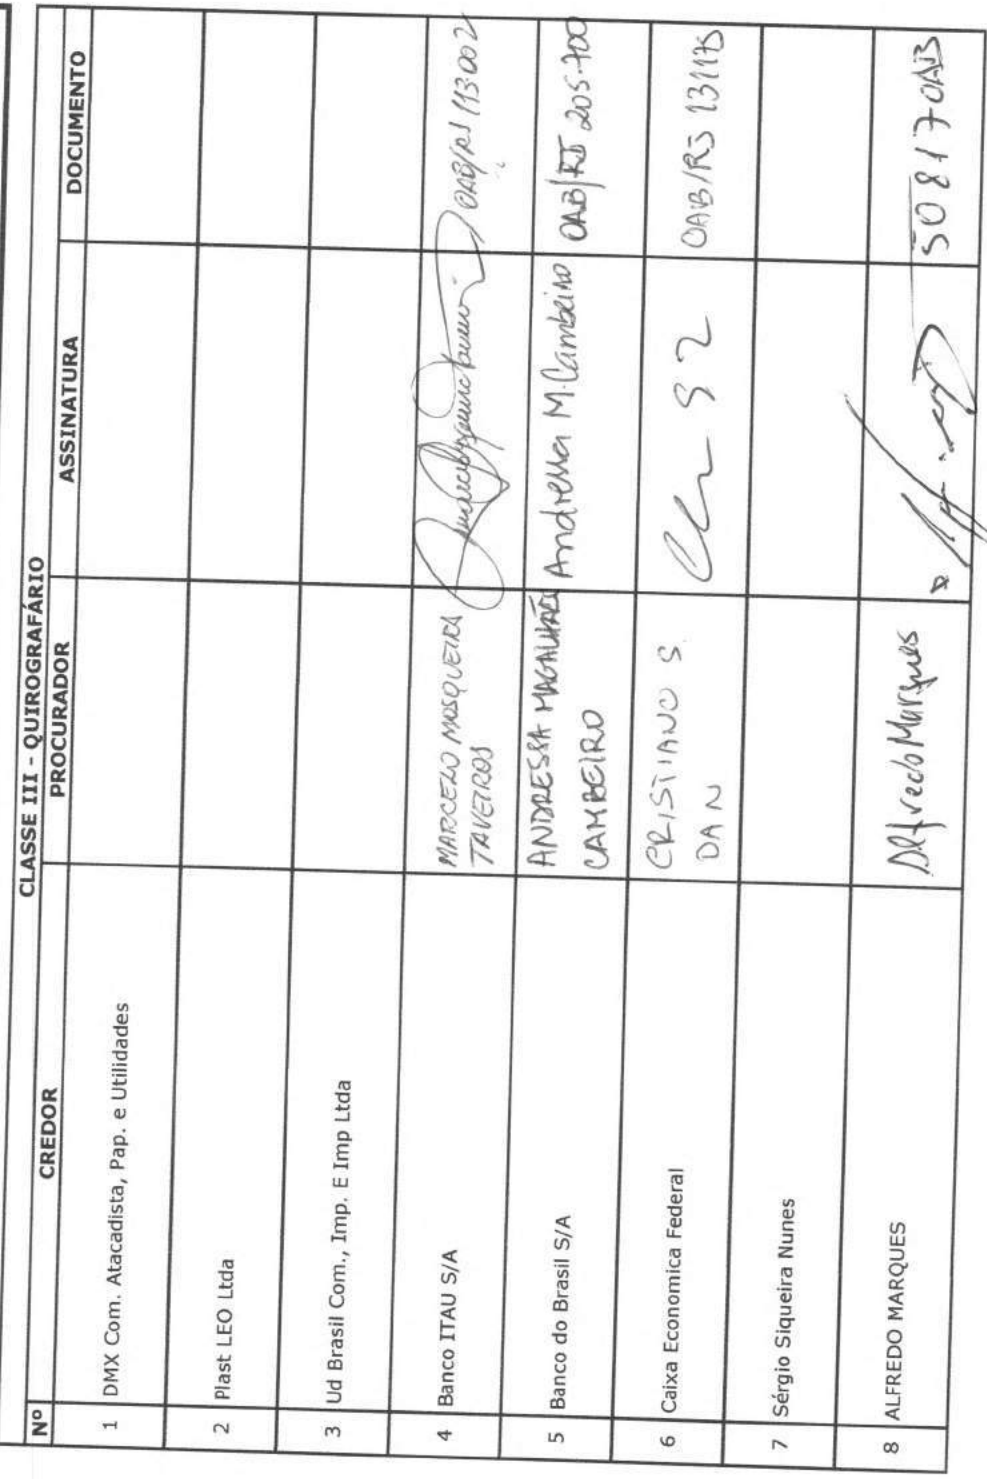 CLASSE III - QUIROGRAFÁRIO
Nº CREDOR PROCURADOR ASSINATURA DOCUMENTO
1 DMX Com. Atacadista, Pap. e Utilidades
2 Plast LEO Ltda
3 Ud Brasil Com., Imp. E Imp Ltda
4 Banco ITAU S/A MARCELO MOSQUEIRA OAB/RJ 113.002
TAVEIROS
5 Banco do Brasil S/A ANDRESSA MAGALHÃES Andressa M. Cambeiro OAB/RJ 205.700
CAMBEIRO
6 Caixa Economica Federal CRISTIANO S. OAB/RJ 131175
DAN
7 Sérgio Siqueira Nunes
8 ALFREDO MARQUES Alfredo Marques 50817 OAB